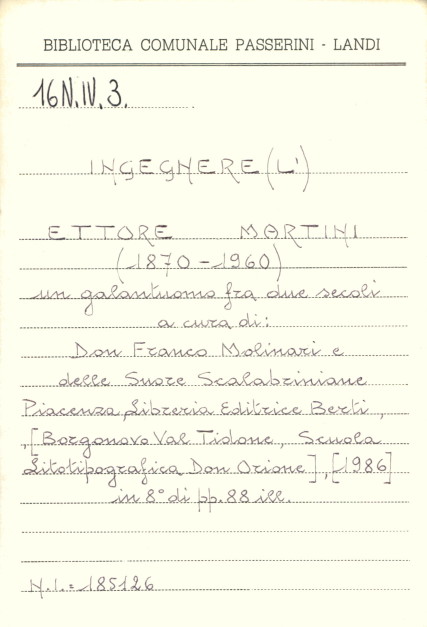 BIBLIOTECA COMUNALE PASSERINI - LANDI
16N.IV.3.
INGEGNERE (L')
ETTORE MARTINI
(1870-1960)
un galantuomo fra due secoli
a cura di:
Don Franco Molinari e
delle Suore Scalabriniane
Piacenza, Libreria Editrice Berti,
,[Borgonovo Val Tidone, Scuola
Litotipografica Don Orione],[1986]
in 8° di pp. 88 ill.
N.I.=185126